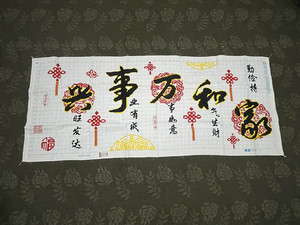 勤俭持
家
和
气生财
万
事如意
事
业有成
兴
旺发达
福